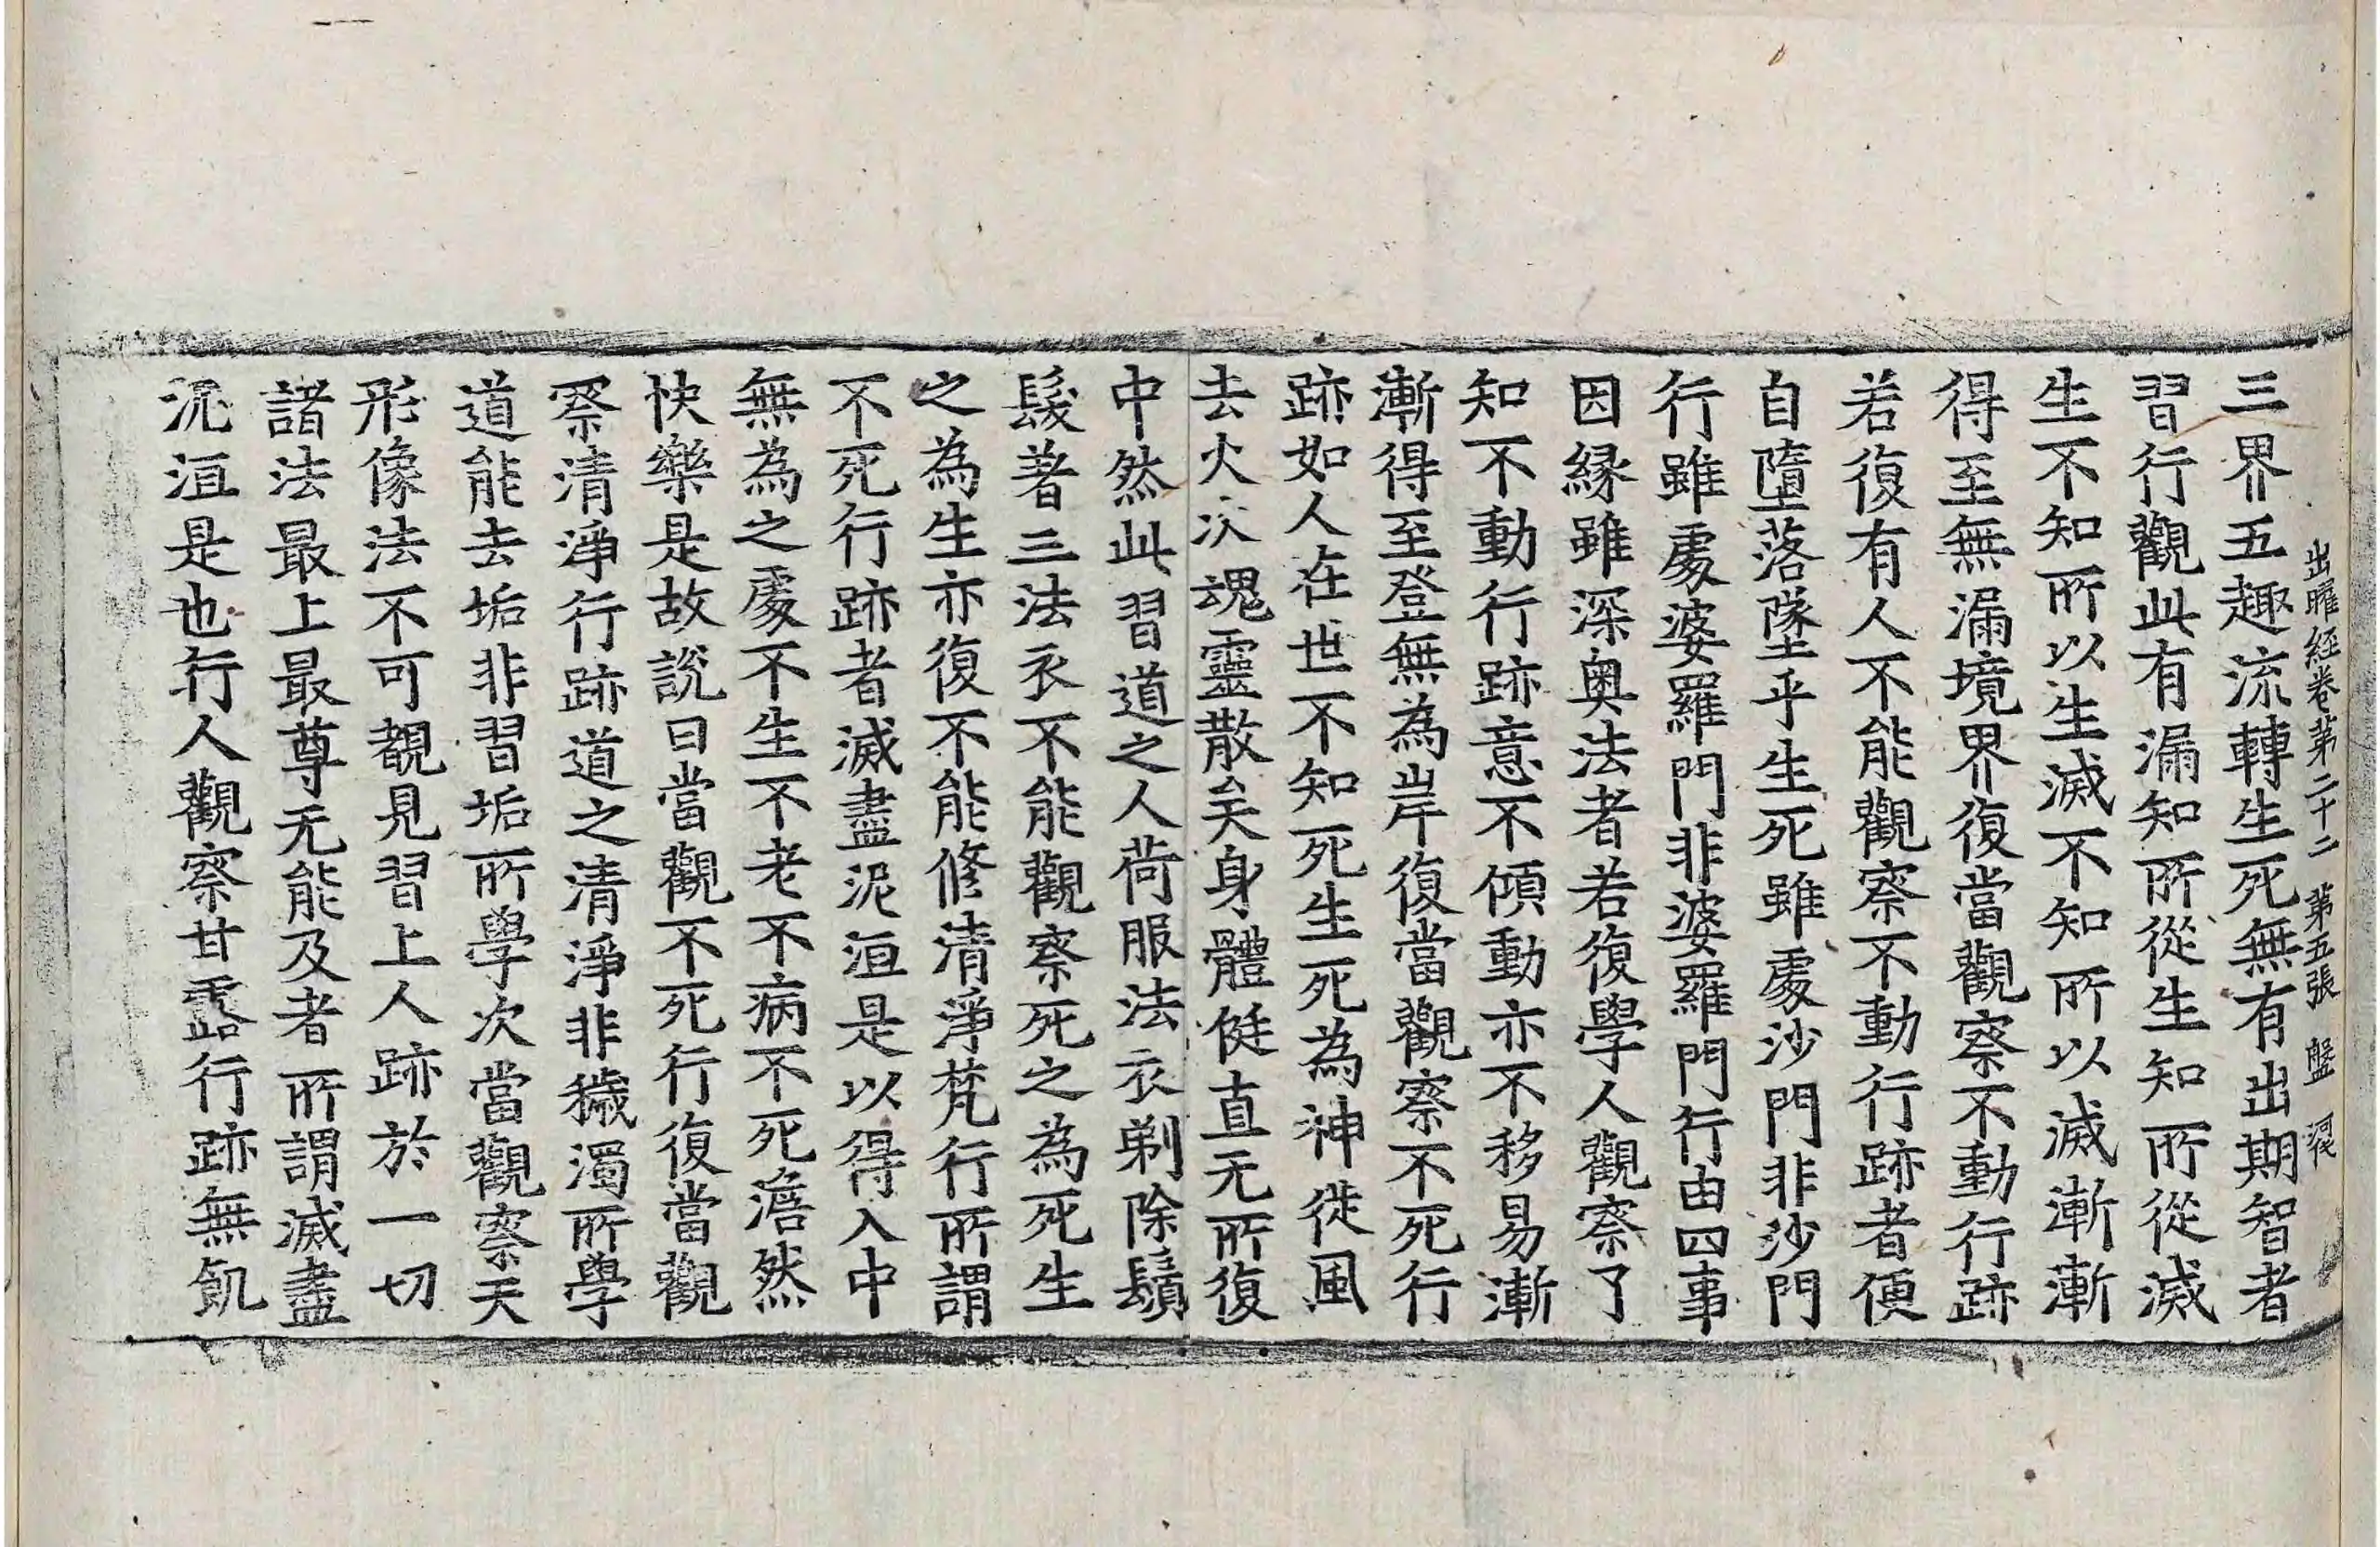 出曜經卷第二十二 第五張 盤
三界五趣流轉生死無有出期智者
習行觀此有漏知所從生知所從滅
生不知所以生滅不知所以滅漸漸
得至無漏境界復當觀察不動行跡
若復有人不能觀察不動行跡者便
自墮落墜乎生死雖處沙門非沙門
行雖處婆羅門非婆羅門行由四事
因緣雖深奧法者若復學人觀察了
知不動行跡意不傾動亦不移易漸
漸得至登無為岸復當觀察不死行
跡如人在世不知死生死為神徙風
去火次魂靈散矣身體侹直无所復
中然此習道之人荷服法衣剃除鬚
髮著三法衣不能觀察死之為死生
之為生亦復不能修清淨梵行所謂
不死行跡者滅盡泥洹是以得入中
無為之處不生不老不病不死澹然
快樂是故說曰當觀不死行復當觀
察清淨行跡道之清淨非穢濁所學
道能去垢非習垢所學次當觀察天
形像法不可覩見習上人跡於一切
諸法最上最尊无能及者所謂滅盡
泥洹是也行人觀察甘露行跡無飢